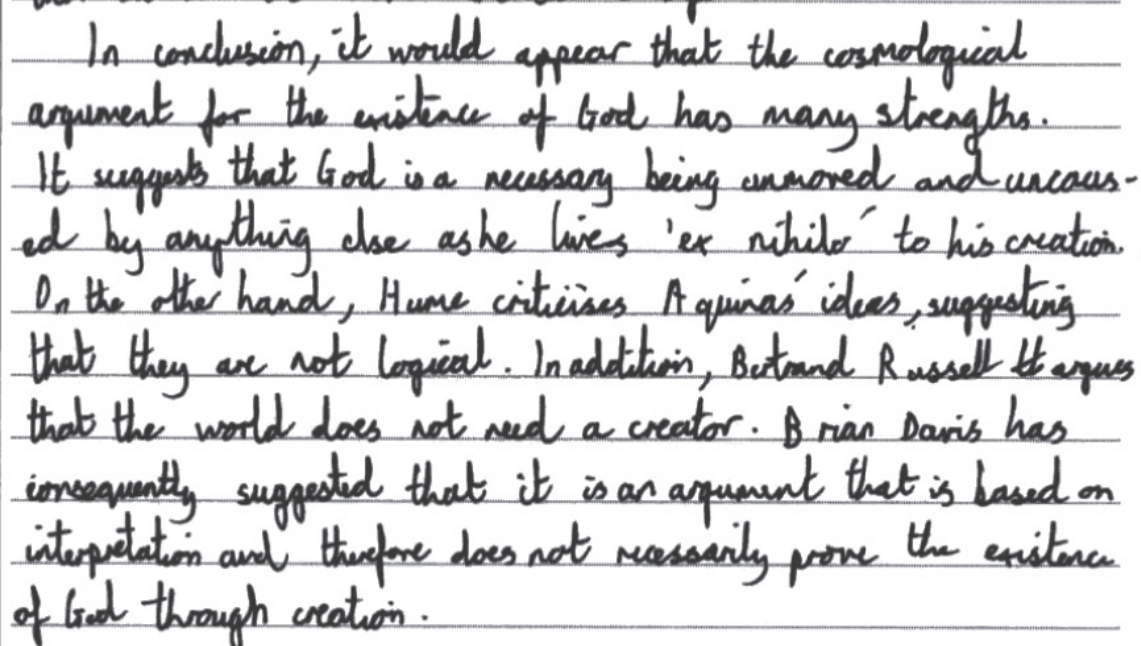 In conclusion, it would appear that the cosmological
argument for the existence of God has many strengths.
It suggests that God is a necessary being unmoved and uncaus-
ed by anything else as he lives 'ex nihilo' to his creation.
On the other hand, Hume criticises Aquinas' ideas, suggesting
that they are not logical. In addition, Bertrand Russell argues
that the world does not need a creator. Brian Davis has
consequently suggested that it is an argument that is based on
interpretation and therefore does not necessarily prove the existence
of God through creation.